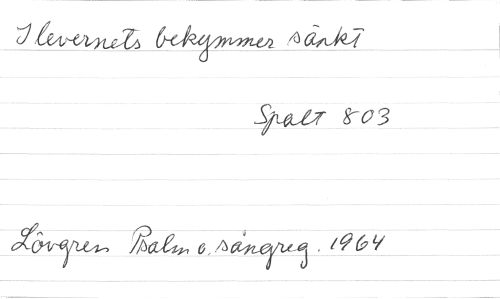 I levernets bekymmer sänkt
Spalt 803
Lövgren Psalm o. sångreg. 1964